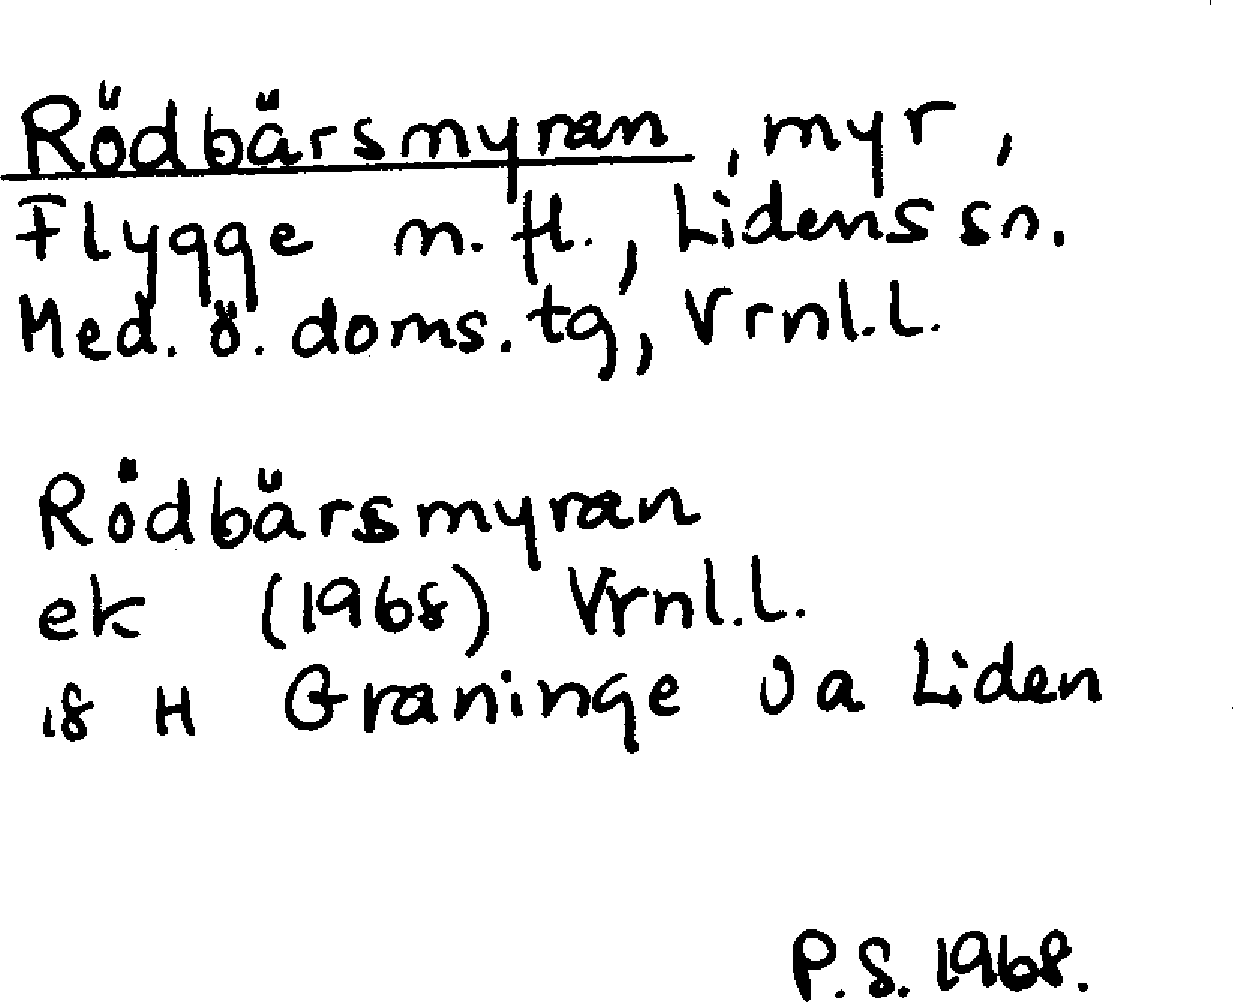 Rödbärsmyran, myr,
Flygge m. fl., Lidens sn.
Med. ö. doms. tg, Vrnl.l.
Rödbärsmyran
ek (1968) Vrnl.l.
18 H Graninge Ja Liden
P.S. 1968.